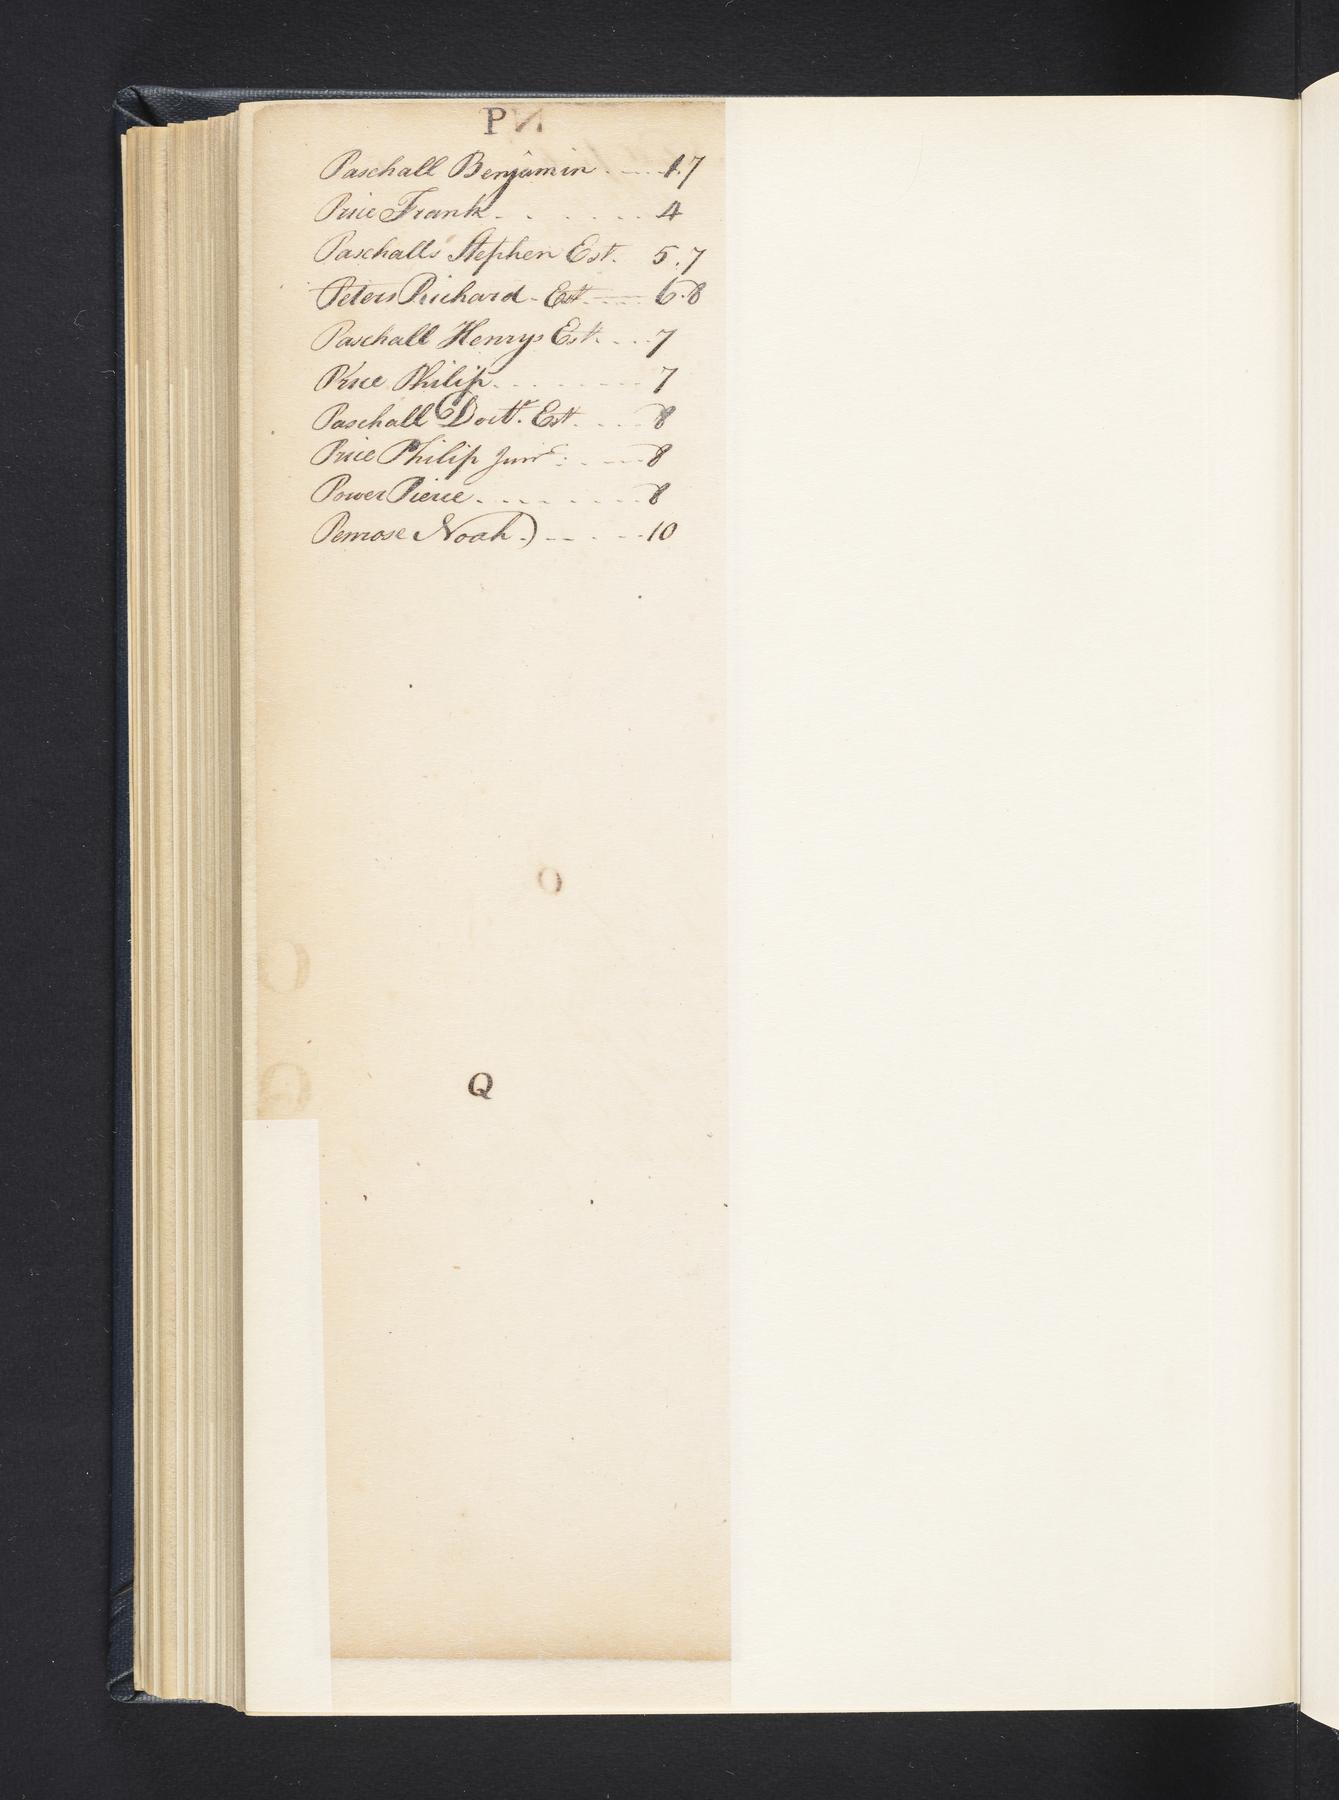 P
Paschall Benjamin . . . . 1.7
Price Frank . . . . . . 4
Paschalls Stephen Est. 5.7
Peters Richard - Est . . . . 6.8
Paschall Henrys Est. . . . 7
Price Philip . . . . . . . 7
Paschall Doctr. Est. . . . 8
Price Philip Junr. . . . 8
Power Pierce . . . . . . . 8
Penrose Noah . . . . . 10
Q